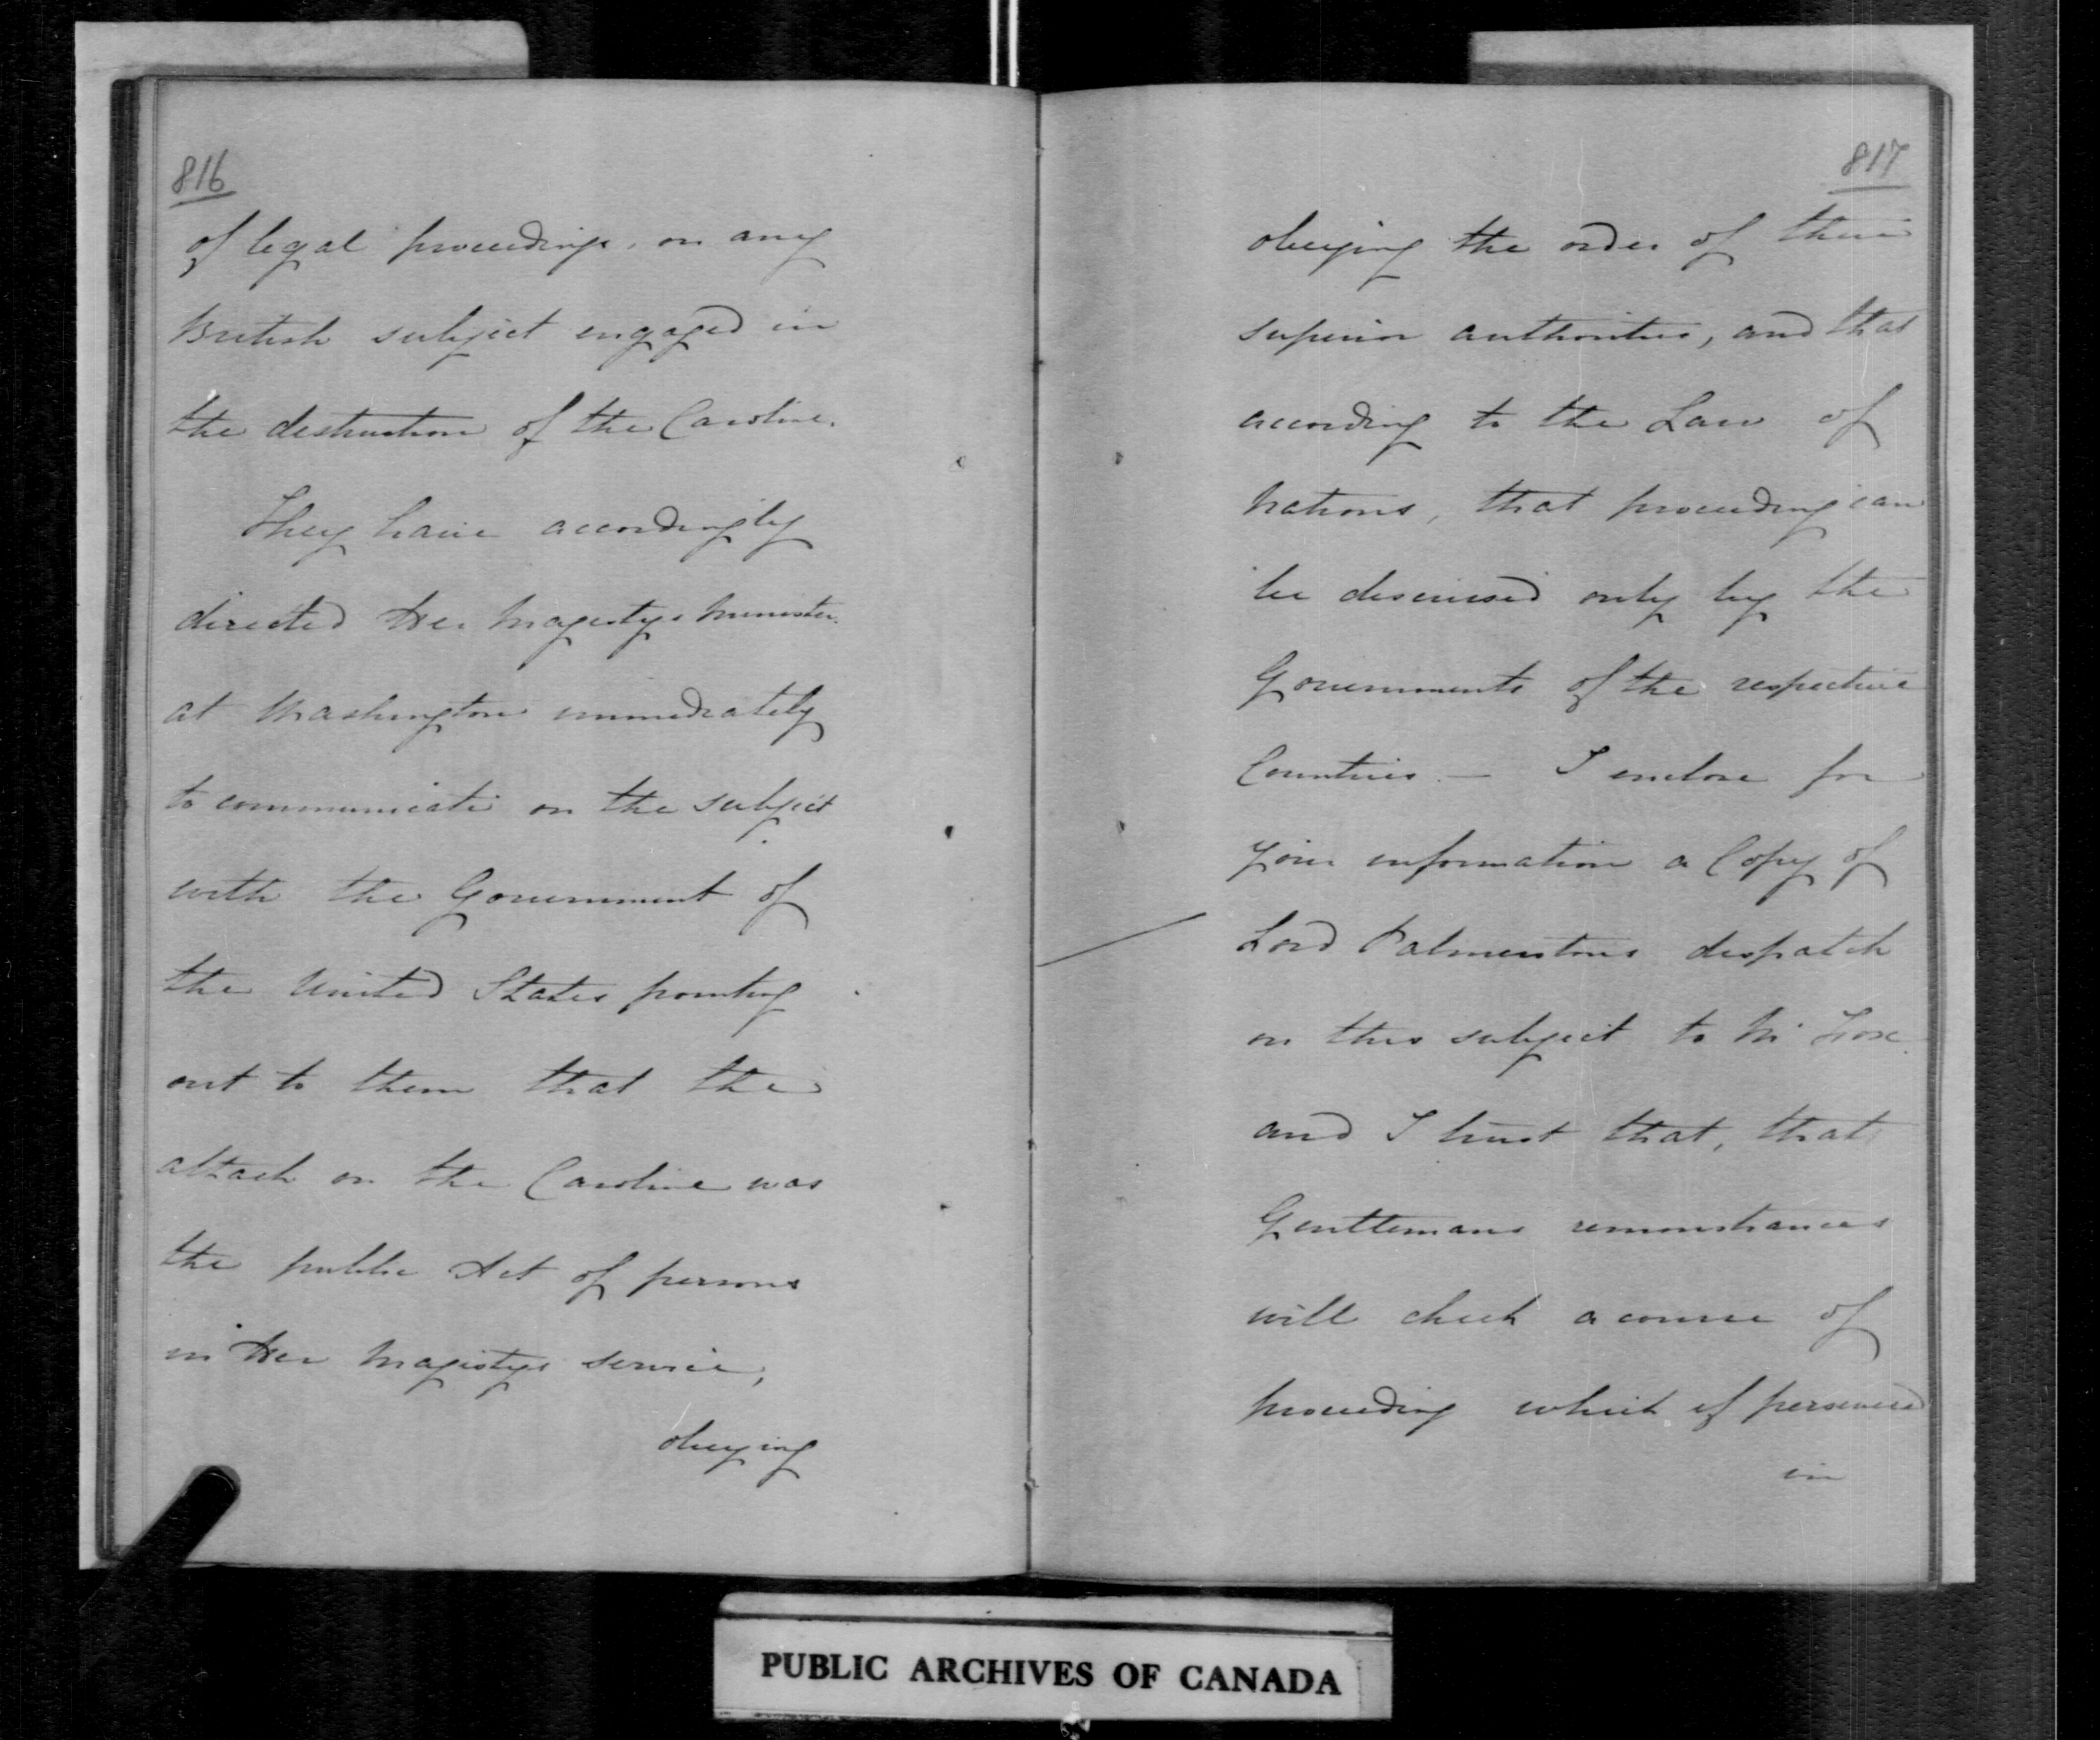 816
of legal proceedings, on any
British subject engaged in
the destruction of the Caroline.
They have accordingly
directed Her Majestys Minister
at Washington immediately
to communicate on the subject
with the Government of
the United States pointing
out to them that the
attack on the Caroline was
the public Act of persons
in Her Majestys service,
obeying
817
obeying the order of their
superior authorities, and that
according to the Law of
Nations, that proceeding can
be discussed only by the
Governments of the respective
Countries. — I enclose for
your information a Copy of
Lord Palmerstons despatch
on this subject to Mr Fox
and I trust that, that
Gentlemans remonstrances
will check a course of
proceeding which if persevered
in
PUBLIC ARCHIVES OF CANADA